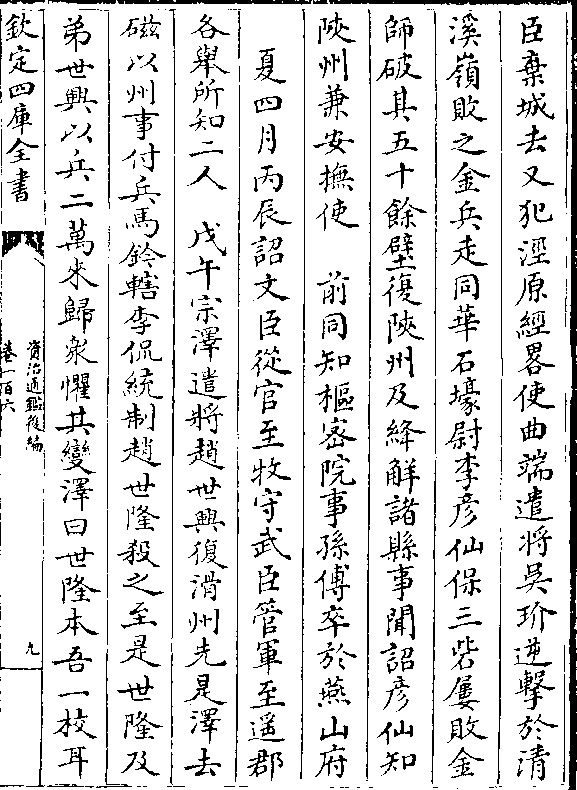 臣棄城去又犯涇原經畧使曲端遣將吳玠逆擊於清
溪嶺敗之金兵走同華石壕尉李彦仙保三砦屢敗金
師破其五十餘壁復陜州及絳解諸縣事聞詔彦仙知
陜州兼安撫使　前同知樞宻院事孫傅卒於燕山府
夏四月丙辰詔文臣從官至牧守武臣管軍至遥郡
各舉所知二人　戊午宗澤遣將趙世興復滑州先是澤去
磁以州事付兵馬鈐轄李侃統制趙世隆殺之至是世隆及
弟世興以兵二萬來歸衆懼其變澤曰世隆本吾一校耳
欽定四庫全書
資治通鑑後編
卷一百六
九